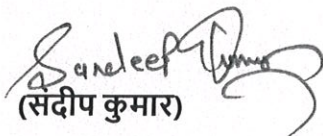 Sandeep Kumar
(संदीप कुमार)